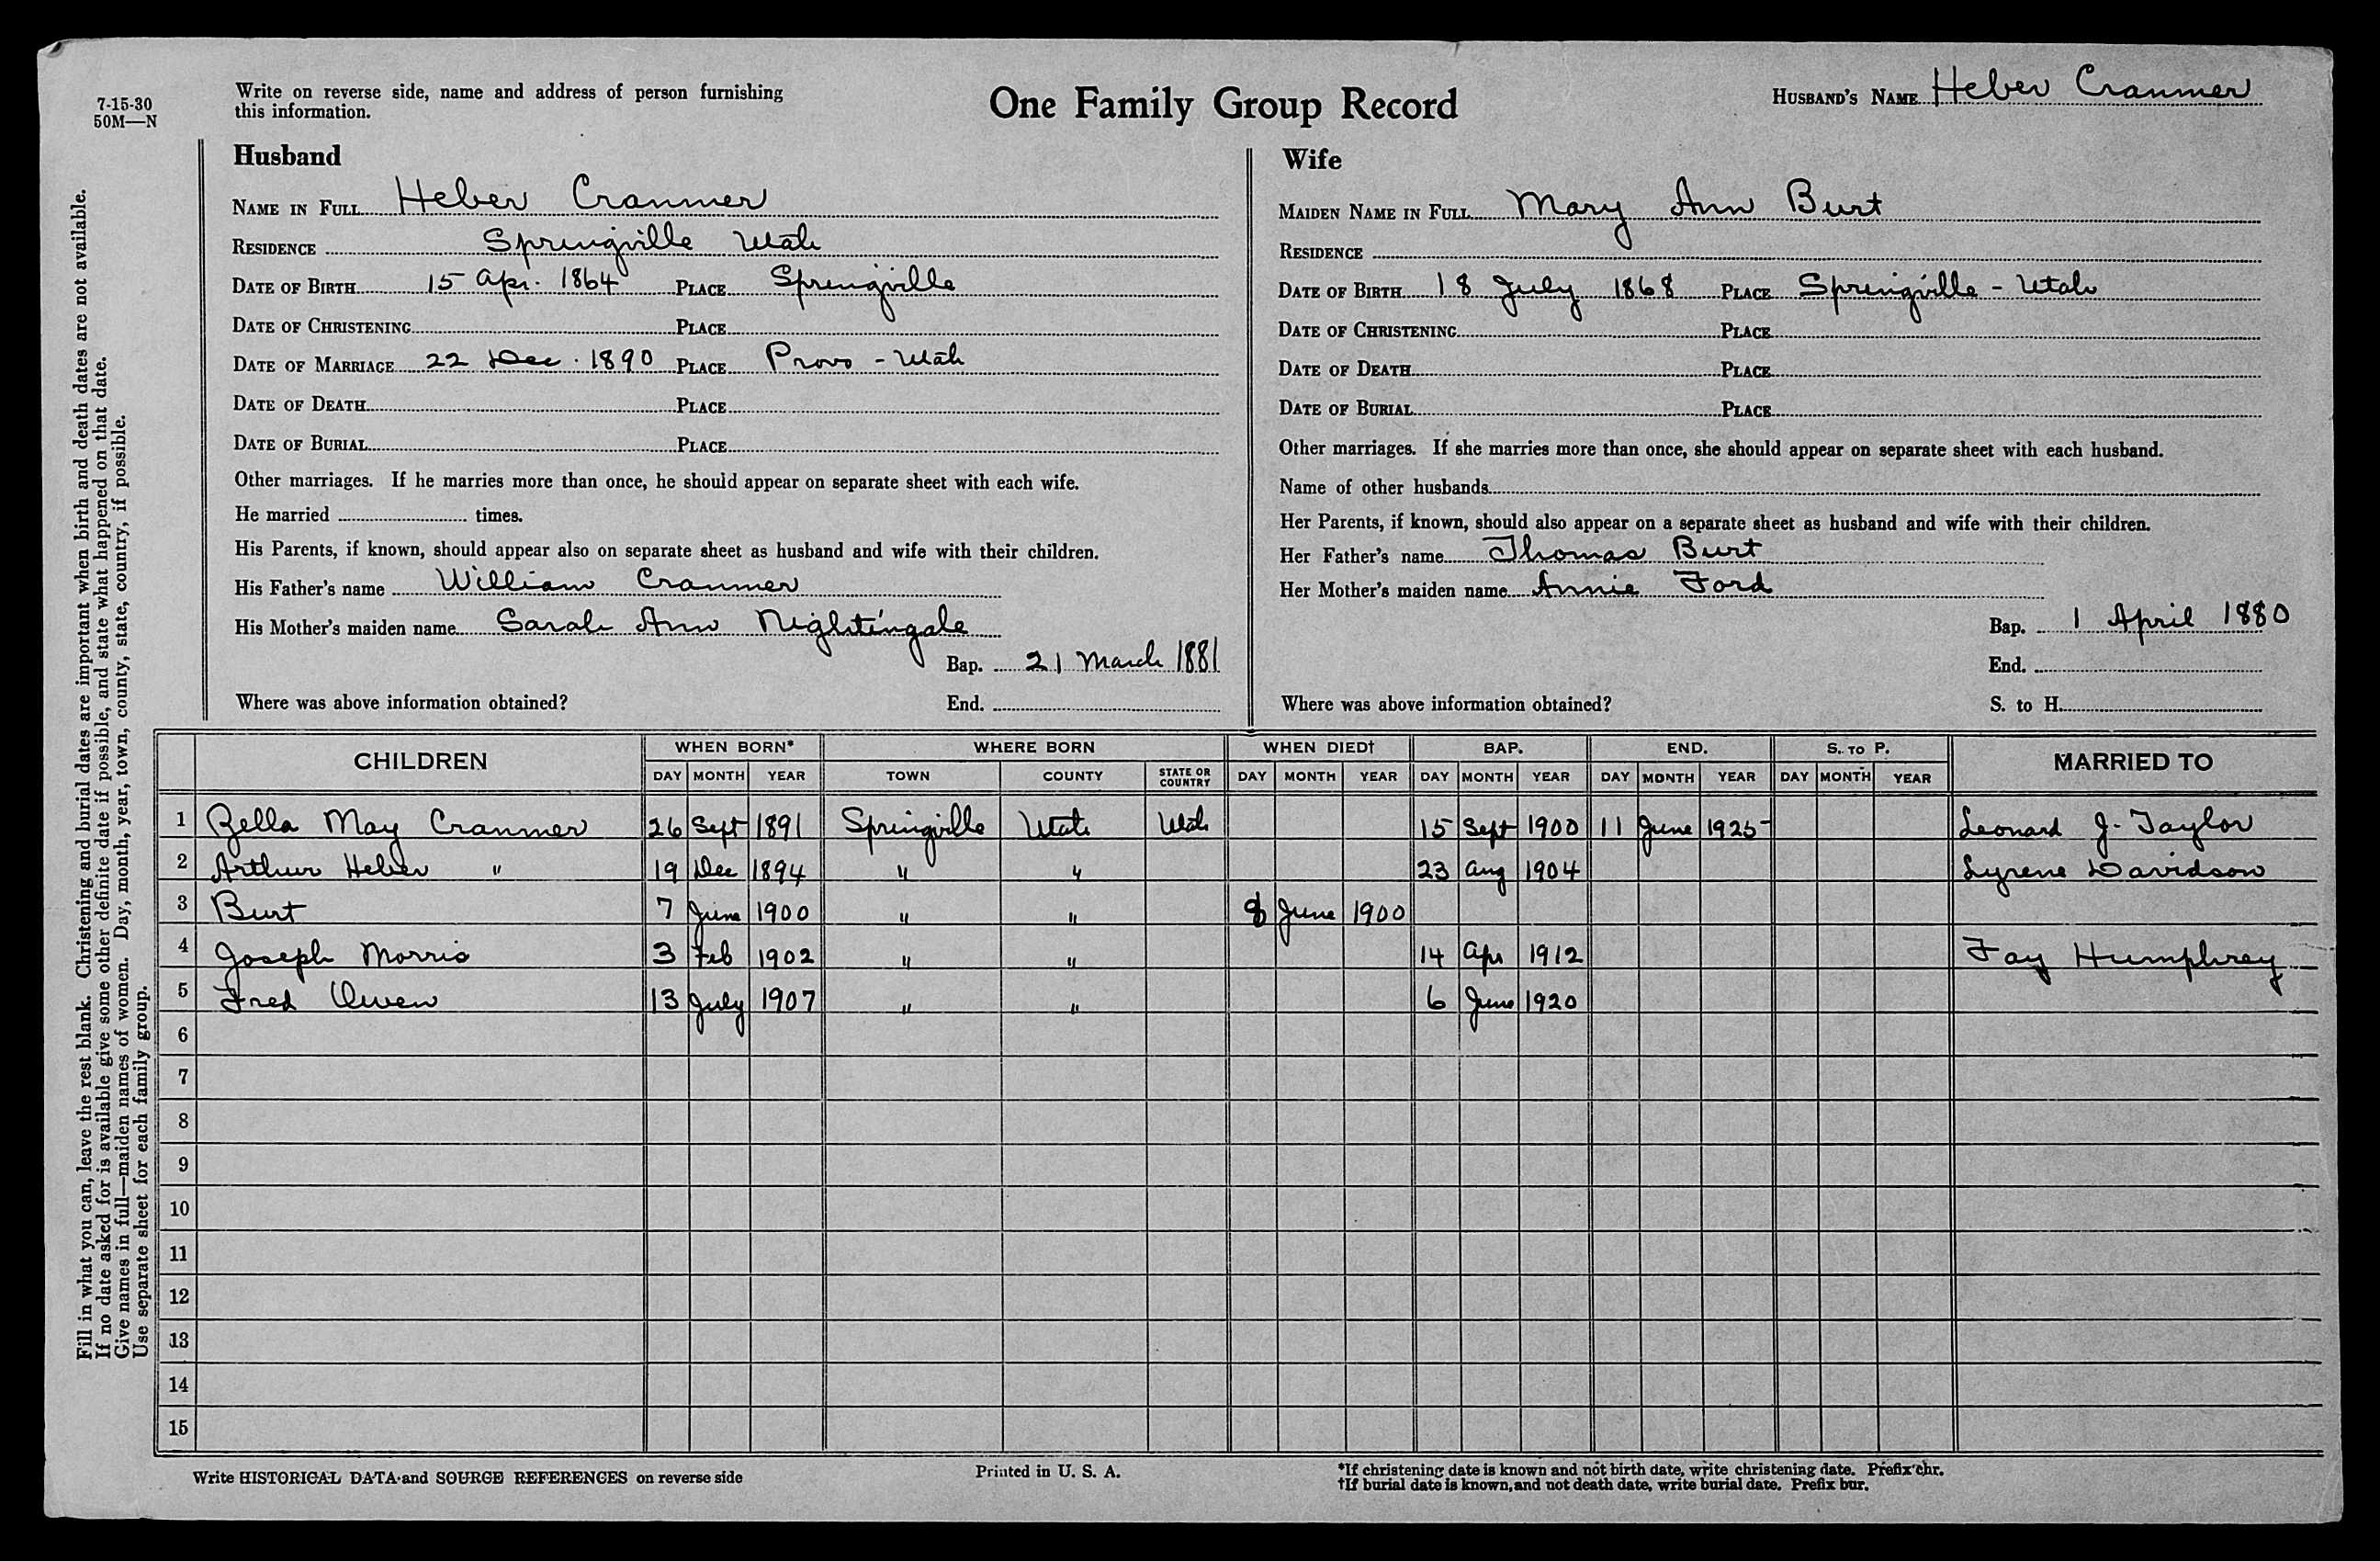 7-15-30
50M—N
Write on reverse side, name and address of person furnishing
this information.
One Family Group Record
HUSBAND'S NAME Heber Cranmer
Fill in what you can, leave the rest blank. Christening and burial dates are important when birth and death dates are not available.
If no date asked for is available give some other definite date if possible, and state what happened on that date.
Give names in full—maiden names of women. Day, month, year, town, county, state, country, if possible.
Use separate sheet for each family group.
Husband
NAME IN FULL Heber Cranmer
RESIDENCE Springville Utah
DATE OF BIRTH 15 Apr. 1864 PLACE Springville
DATE OF CHRISTENING PLACE
DATE OF MARRIAGE 22 Dec. 1890 PLACE Provo - Utah
DATE OF DEATH PLACE
DATE OF BURIAL PLACE
Other marriages. If he marries more than once, he should appear on separate sheet with each wife.
He married times.
His Parents, if known, should appear also on separate sheet as husband and wife with their children.
His Father's name William Cranmer
His Mother's maiden name Sarah Ann Nightingale
Bap. 21 March 1881
Where was above information obtained? End.
Wife
MAIDEN NAME IN FULL Mary Ann Burt
RESIDENCE
DATE OF BIRTH 18 July 1868 PLACE Springville - Utah
DATE OF CHRISTENING PLACE
DATE OF DEATH PLACE
DATE OF BURIAL PLACE
Other marriages. If she marries more than once, she should appear on separate sheet with each husband.
Name of other husbands
Her Parents, if known, should also appear on a separate sheet as husband and wife with their children.
Her Father's name Thomas Burt
Her Mother's maiden name Annie Ford
Bap. 1 April 1880
End.
Where was above information obtained? S. to H.
CHILDREN WHEN BORN* WHERE BORN WHEN DIED† BAP. END. S. TO P. MARRIED TO
DAY MONTH YEAR TOWN COUNTY STATE OR COUNTRY DAY MONTH YEAR DAY MONTH YEAR DAY MONTH YEAR DAY MONTH YEAR
1 Zella May Cranmer 26 Sept 1891 Springville Utah Utah 15 Sept 1900 11 June 1925 Leonard J. Taylor
2 Arthur Heber " 19 Dec 1894 " " 23 Aug 1904 Lyrene Davidson
3 Burt 7 June 1900 " " 8 June 1900
4 Joseph Morris 3 Feb 1902 " " 14 Apr 1912 Fay Humphrey
5 Fred Owen 13 July 1907 " " 6 June 1920
6
7
8
9
10
11
12
13
14
15
Write HISTORICAL DATA and SOURCE REFERENCES on reverse side
Printed in U. S. A.
*If christening date is known and not birth date, write christening date. Prefix chr.
†If burial date is known, and not death date, write burial date. Prefix bur.